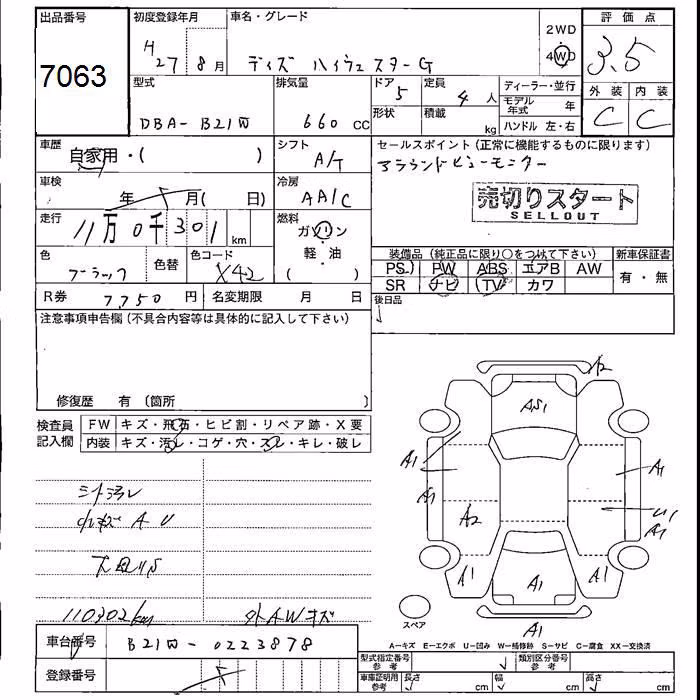 出品番号
7063
初度登録年月
H27 8月
車名・グレード
デイズ ハイウェスターG
2WD
4WD
評価点
3.5
外装 内装
C C
型式
DBA-B21W
排気量
660 cc
ドア
5
形状
定員
4人
積載
kg
ディーラー・並行
モデル年式 年
ハンドル 左・右
車歴
自家用・( )
シフト
A/T
セールスポイント (正常に機能するものに限ります)
アラウンドビューモニター
売切りスタート
SELLOUT
車検
年 月( 日)
冷房
AAC
走行
11万0千301km
燃料
ガソリン
軽・油
( )
色
ブーラック
色替
色コード
X42
装備品 (純正品に限り○をつけて下さい)
新車保証書
PS PW ABS エアB AW
SR ナビ TV カワ
有・無
R券 7750円
名変期限 月 日
後日品
注意事項申告欄 (不具合内容等は具体的に記入して下さい)
修復歴 有 〔箇所 〕
検査員記入欄
FW キズ・飛石・ヒビ割・リペア跡・X要
内装 キズ・汚レ・コゲ・穴・スレ・キレ・破レ
シート汚レ
小キズ A U
110302km
外AWキズ
A2
AS1
A1
A1
A1
U1
A1
A2
A1
A1
A1
A1
スペア
A-キズ E-エクボ U-凹み W-補修跡 S-サビ C-腐食 XX-交換済
車台番号
B21W-0223878
登録番号
型式指定番号 参考
類別区分番号 参考
車庫証明用 参考
長さ cm
幅 cm
高さ cm